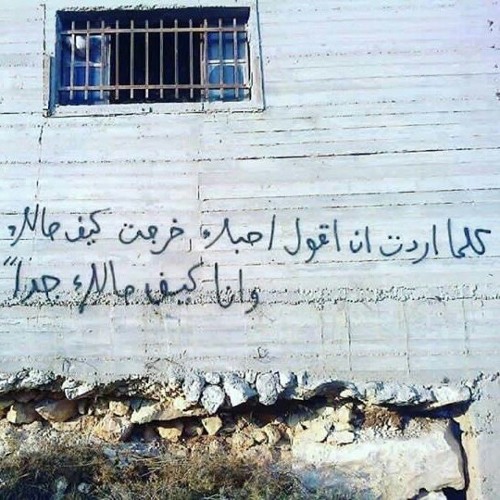 كلما اردت ان اقول احبك خرجت كيف حالك
وانا كيف حالك جداً